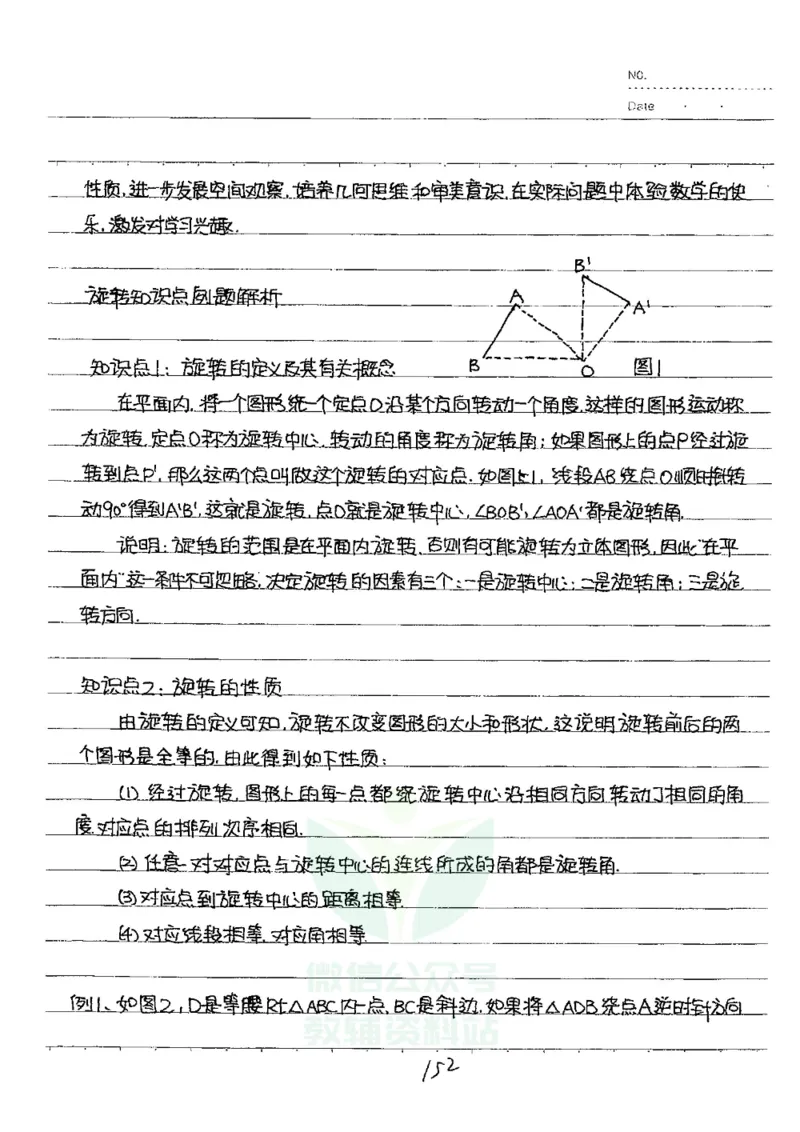 NO.
Date
性质,进一步发展空间观察,培养几何思维和审美意识,在实际问题中体验数学的快
乐,激发对学习兴趣.
B'
旋转知识点例题解析
A
A'
知识点1:旋转的定义及其有关概念
B
O
图1
在平面内,将一个图形绕一个定点O沿某个方向转动一个角度,这样的图形运动称
为旋转,定点O称为旋转中心,转动的角度称为旋转角;如果图形上的点P经过旋
转到点P',那么这两个点叫做这个旋转的对应点.如图上1,线段AB绕点O顺时针转
动90°得到A'B',这就是旋转,点O就是旋转中心,∠BOB',∠AOA'都是旋转角.
说明:旋转的范围是在平面内旋转,否则有可能旋转为立体图形,因此"在平
面内"这一条件不可忽略.决定旋转的因素有三个:一是旋转中心;二是旋转角;三是旋
转方向.
知识点2:旋转的性质
由旋转的定义可知,旋转不改变图形的大小和形状,这说明旋转前后的两
个图形是全等的,由此得到如下性质:
(1)经过旋转,图形上的每一点都绕旋转中心沿相同方向转动了相同的角
度,对应点的排列次序相同.
(2)任意一对对应点与旋转中心的连线所成的角都是旋转角.
(3)对应点到旋转中心的距离相等.
(4)对应线段相等,对应角相等.
微信公众号
例1、如图2,D是等腰Rt△ABC内一点,BC是斜边,如果将△ADB绕点A逆时针方向
教辅资料站
152